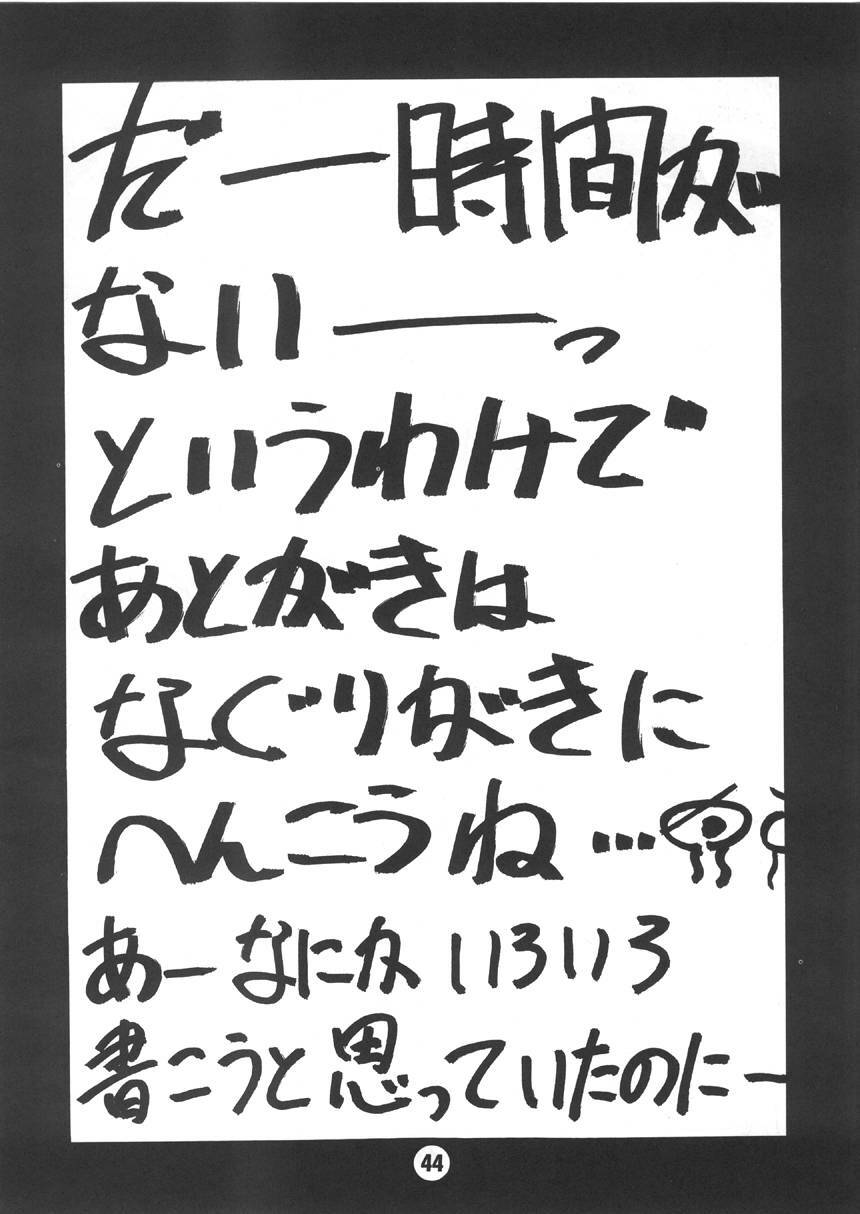 だー時間が
ないーっ
というわけで
あとがきは
なぐりがきに
へんこうね…
あーなにか いろいろ
書こうと思っていたのにー
44